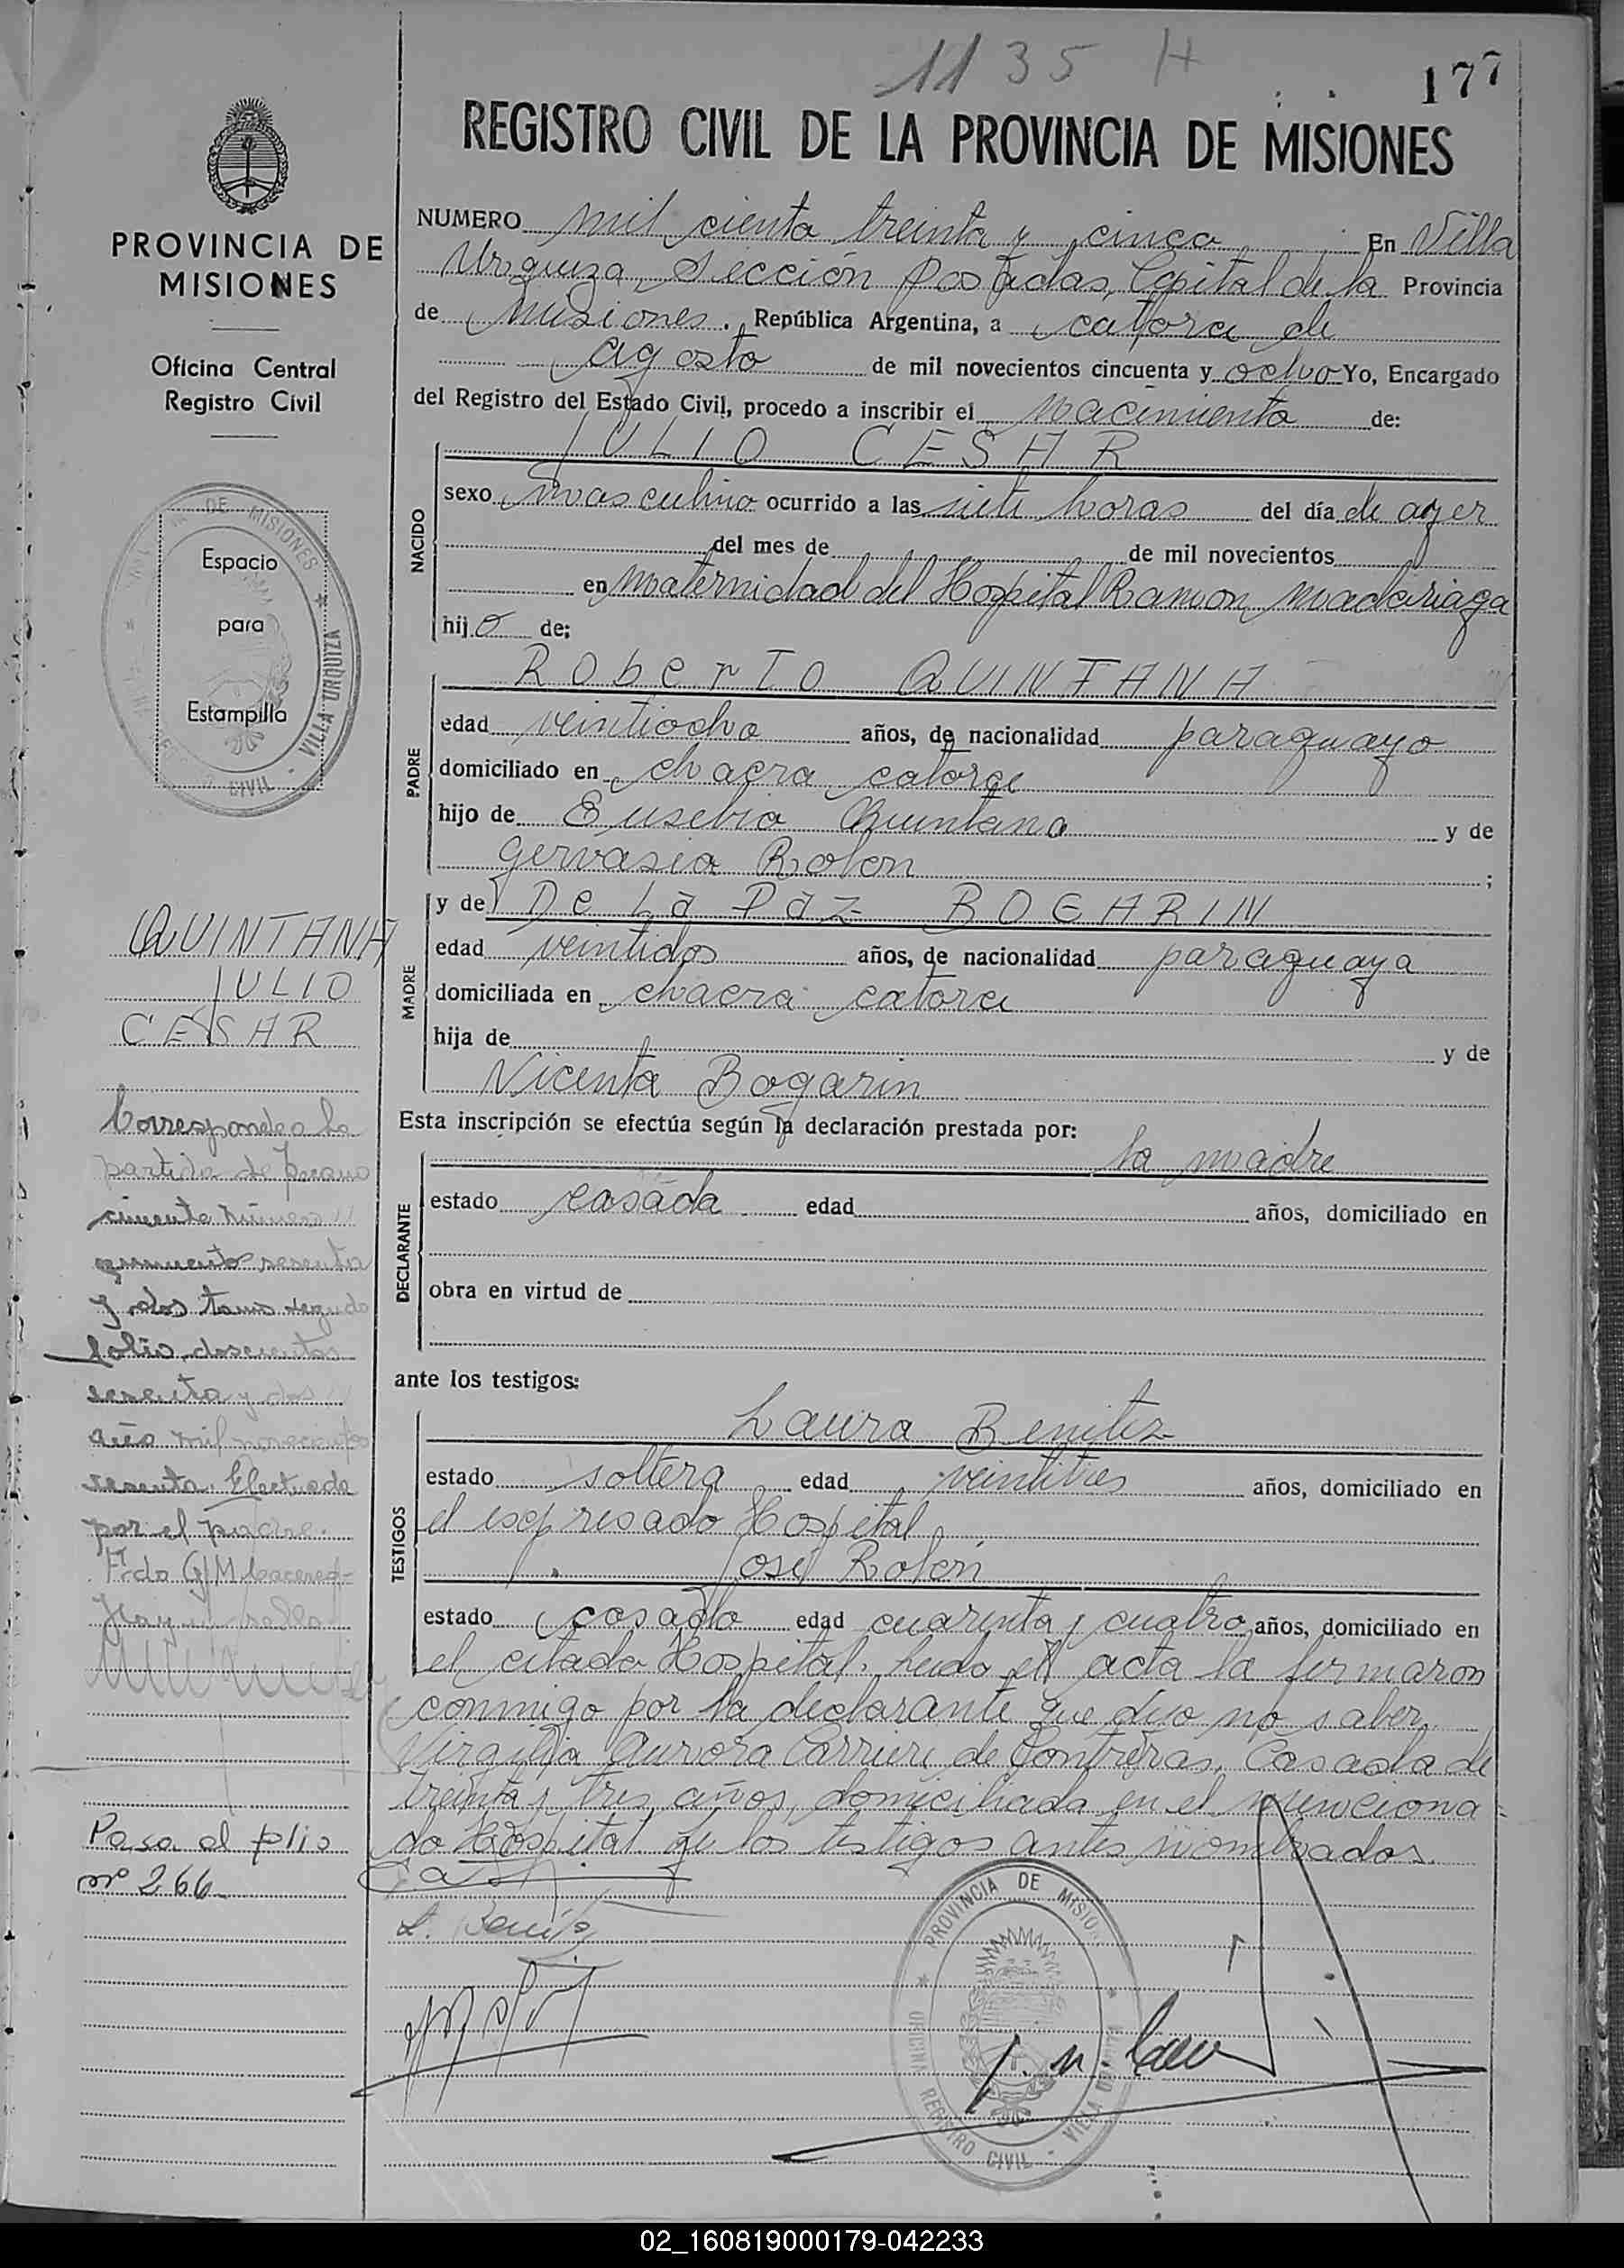 1135 H
177
REGISTRO CIVIL DE LA PROVINCIA DE MISIONES
PROVINCIA DE
MISIONES
Oficina Central
Registro Civil
Espacio
para
Estampilla
NUMERO mil ciento treinta y cinco En Villa
Urquiza, Sección Posadas, Capital de la Provincia
de Misiones. República Argentina, a catorce de
agosto de mil novecientos cincuenta y ocho Yo, Encargado
del Registro del Estado Civil, procedo a inscribir el nacimiento de:
NACIDO
JULIO CESAR
sexo masculino ocurrido a las siete horas del día de ayer
del mes de de mil novecientos
en maternidad del Hospital Ramon Madariaga
hijo de:
PADRE
Roberto QUINTANA
edad veintiocho años, de nacionalidad paraguayo
domiciliado en chacra catorce
hijo de Eusebio Quintana y de
Gervasia Rolon ;
MADRE
y de De La Paz BOGARIN
edad veintidos años, de nacionalidad paraguaya
domiciliada en chacra catorce
hija de y de
Vicenta Bogarin
Esta inscripción se efectúa según la declaración prestada por:
DECLARANTE
la madre
estado casada edad años, domiciliado en
obra en virtud de
ante los testigos:
TESTIGOS
Laura Benitez
estado soltera edad veintitres años, domiciliado en
el espresado Hospital
José Rolon
estado casado edad cuarenta y cuatro años, domiciliado en
el citado Hospital. Leida el acta la firmaron
conmigo por la declarante que dijo no saber
Virgilia Aurora Carrieri de Contreras, Casada de
treinta y tres años, domiciliada en el menciona-
do Hospital y los testigos antes nombrados.
L. Benitez
QUINTANA
JULIO
CESAR
Corresponde a la
partida de
número
quinientos sesenta
y dos tomo segundo
folio, doscientos
sesenta y dos
año mil novecientos
sesenta. Efectuada
por el padre.
Fdo G/M Caceres-
Hay un sello
Pasa al folio
nº 266
PROVINCIA DE MISIONES
OFICINA REGISTRO CIVIL - VILLA URQUIZA
02_160819000179-042233